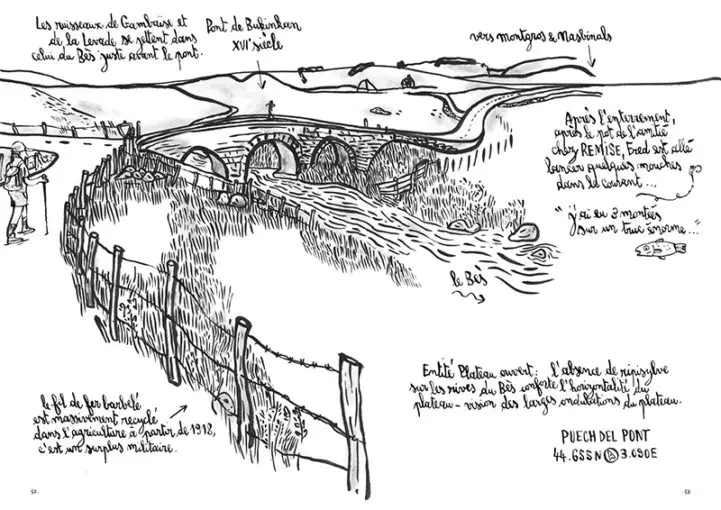 Les ruisseaux de Gambaïse et
de la Levade se jettent dans
celui du Bès juste avant le pont.
Pont de Bukinkan
XVIe siècle
vers Montgros & Nasbinals
Après l'enterrement,
après le pot de l'amitié
chez REMISE, Fred est allé
lancer quelques mouches
dans le courant...
"j'ai eu 3 montées
sur un truc énorme..."
le Bès
Entité Plateau ouvert : l'absence de ripisylve
sur les rives du Bès conforte l'horizontalité du
plateau - vision des larges ondulations du plateau.
le fil de fer barbelé
est massivement recyclé
dans l'agriculture à partir de 1918,
c'est un surplus militaire.
PUECH DEL PONT
44.655N 3.090E
52.
.53